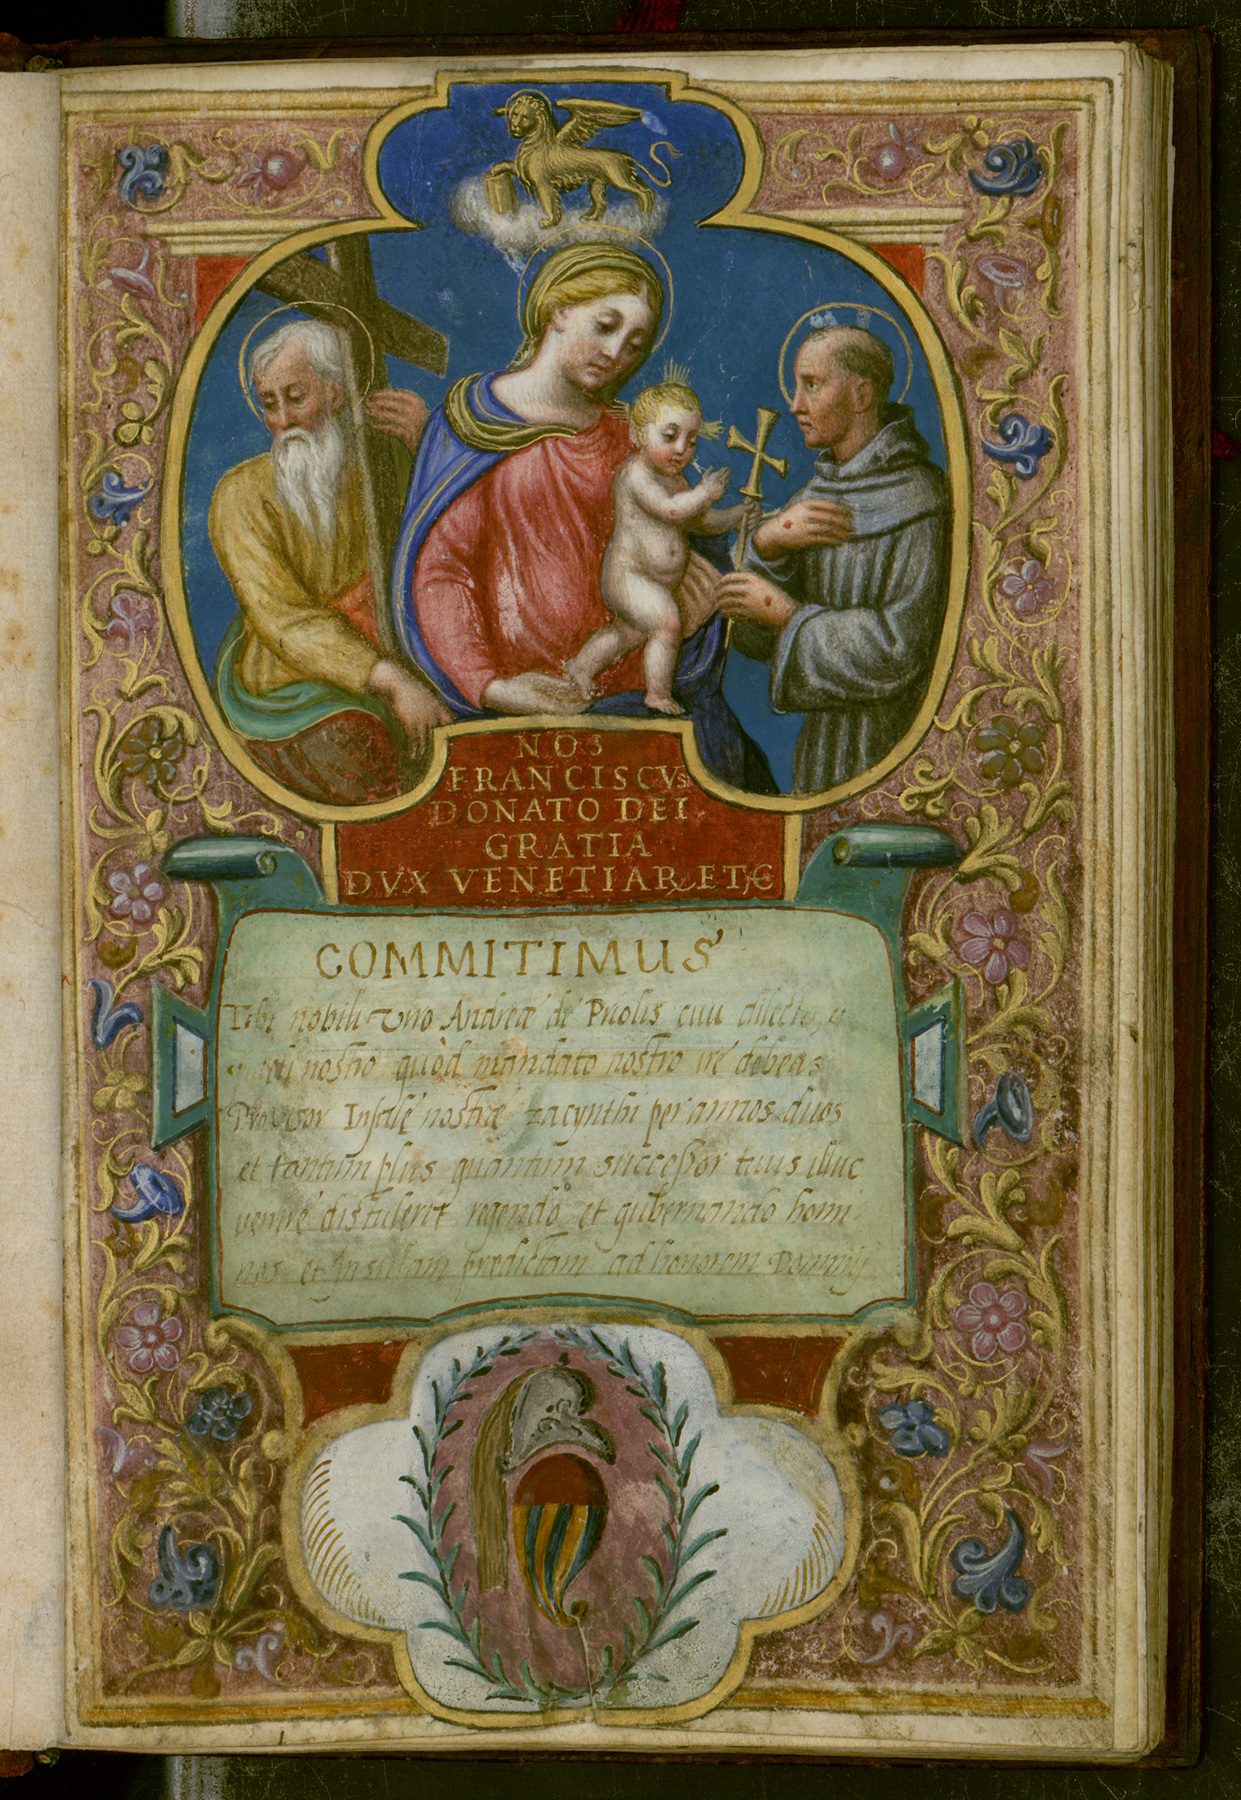 NOS
FRANCISCVS
DONATO DEI
GRATIA
DVX VENETIAR ETC
COMMITIMUS
Tibi nobili Viro Andreæ de Priolis civi dilecto
nostro quòd mandato nostro ire debeas
Provisor Insulę nostræ zacynthi per annos duos
et tantum plus quantum successor tuus illuc
venire distuleret regendo et gubernando homi
nes et Insulam predictam ad honorem Dominij